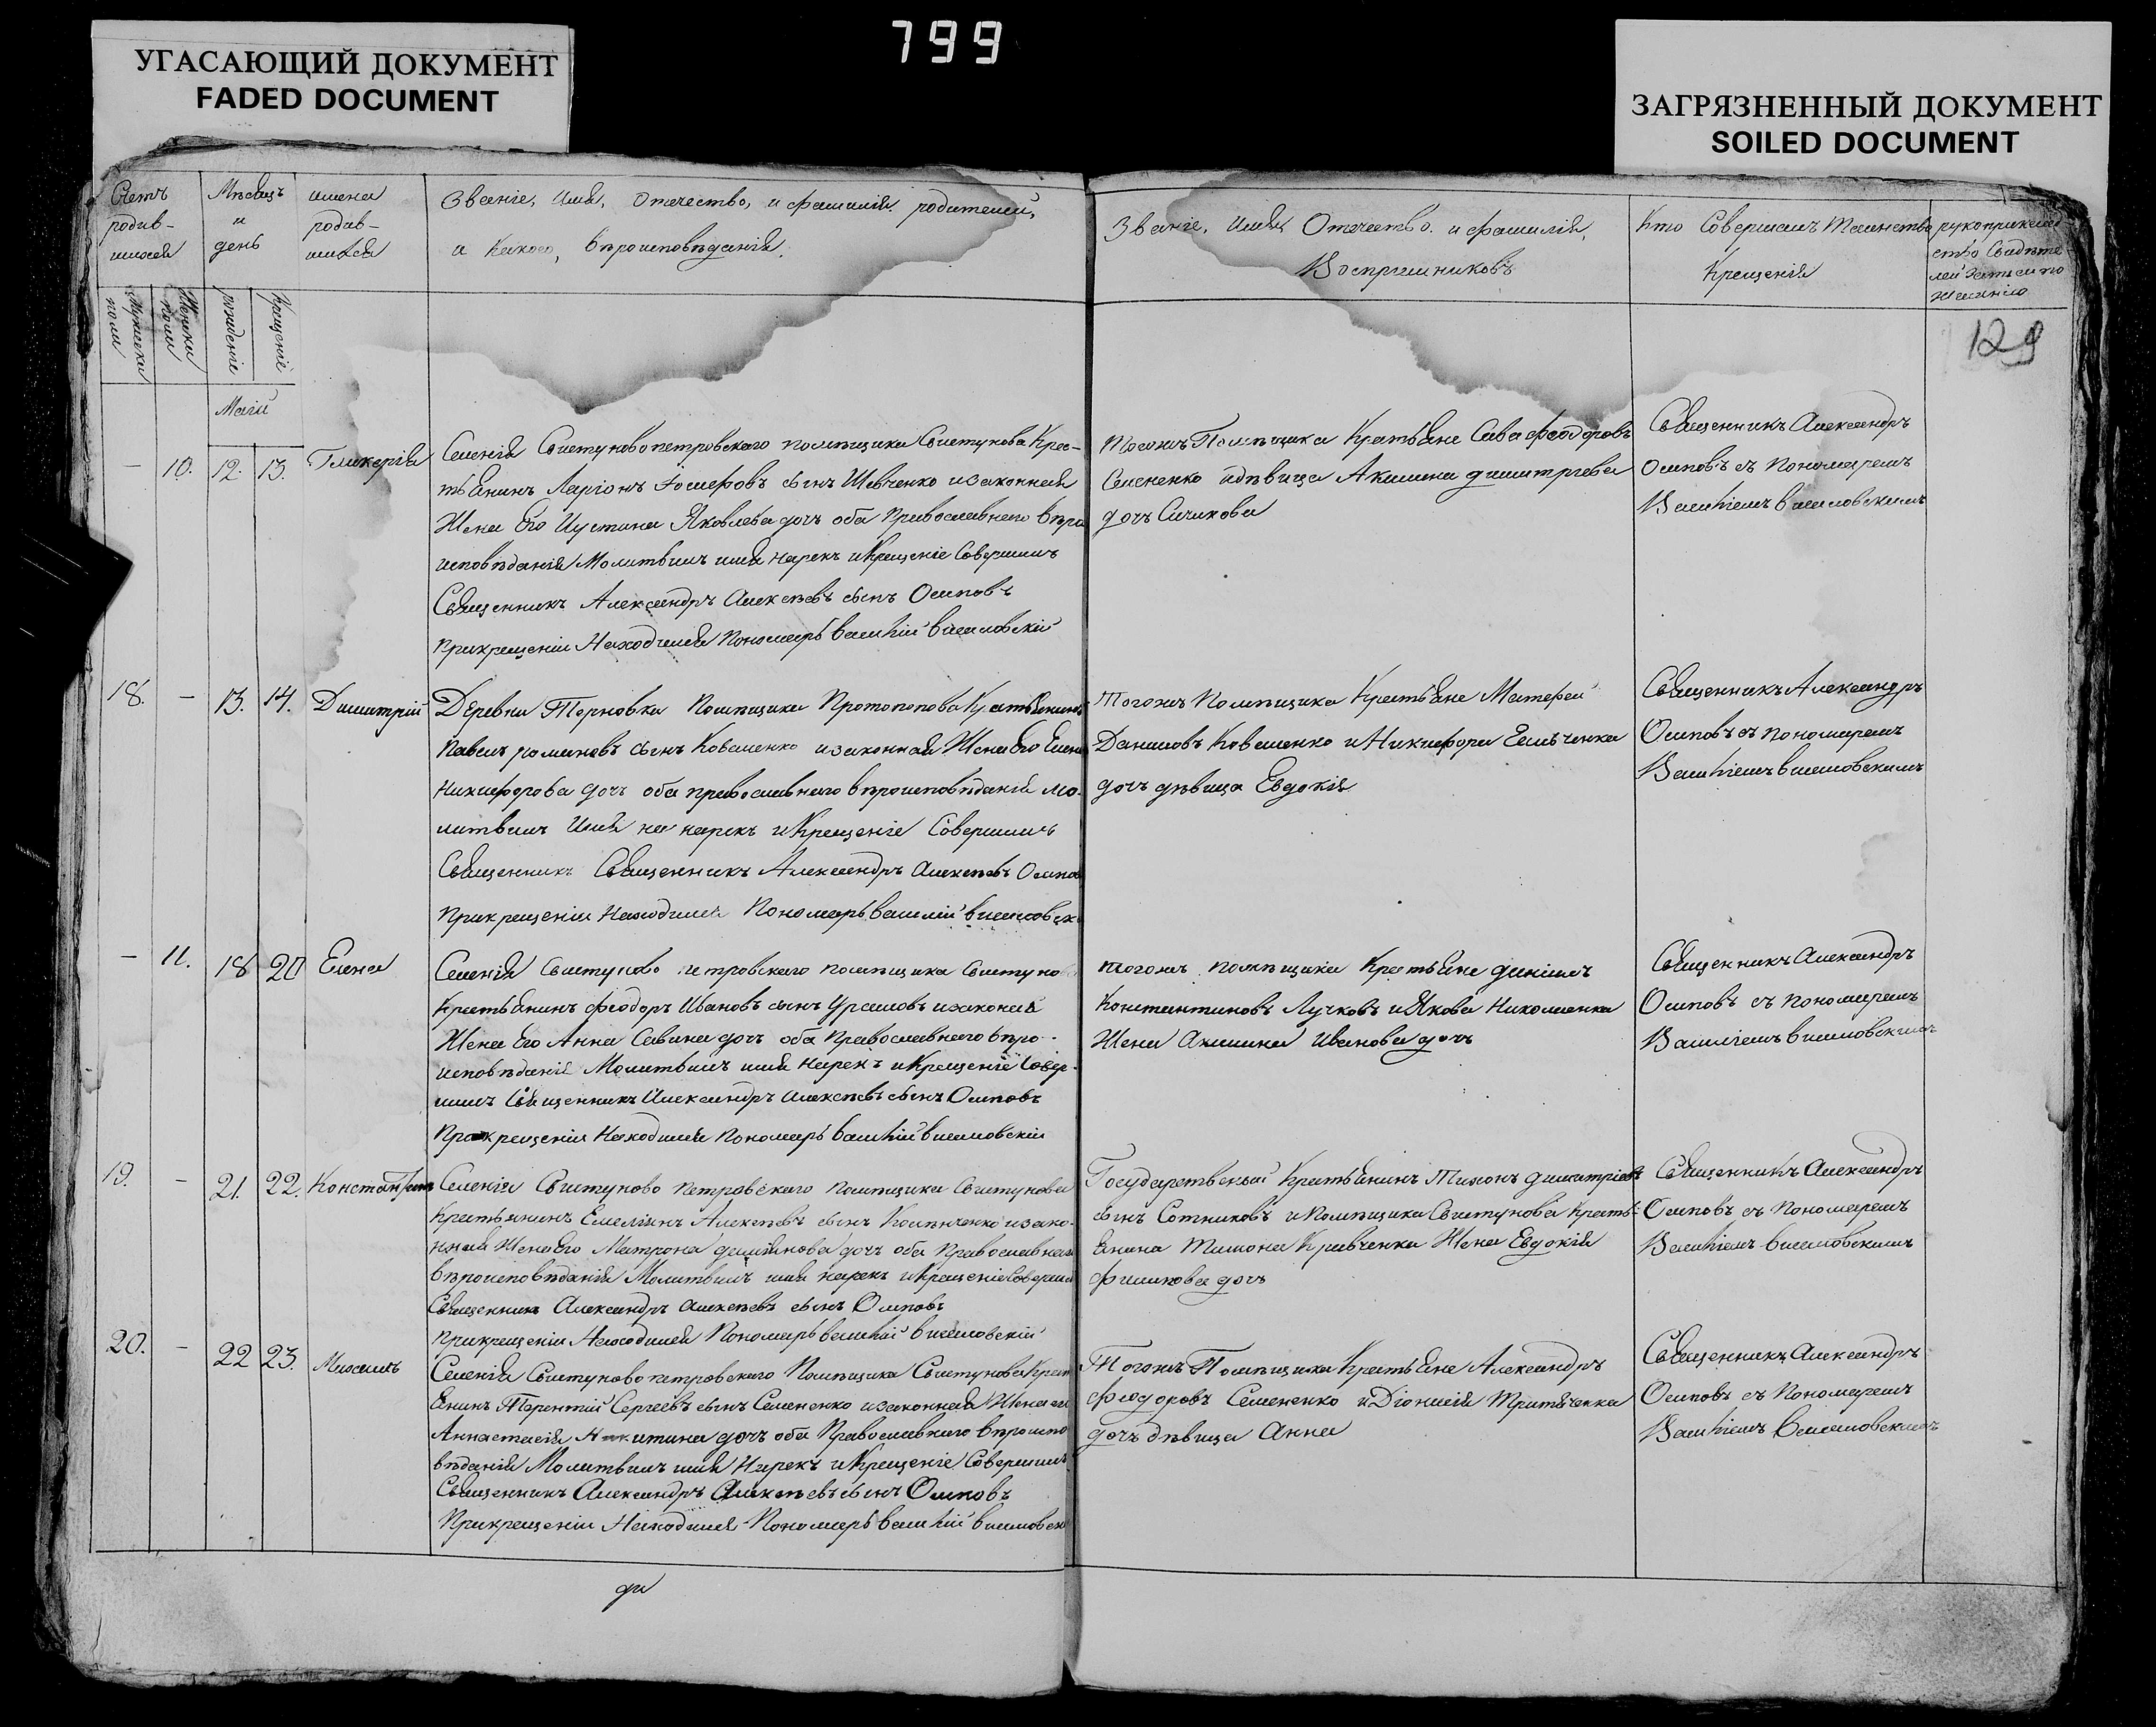 799
УГАСАЮЩИЙ ДОКУМЕНТ
FADED DOCUMENT
ЗАГРЯЗНЕННЫЙ ДОКУМЕНТ
SOILED DOCUMENT
Счетъ родив-шихся
Мѣсяцъ и день
имена родив-шихся
Званіе, Имя, Отечество, и фамилія родителей,
и Какого, вѣроисповѣданія.
Званіе, Имя, Отечество. и фамилія,
Воспріемниковъ
Кто Совершалъ Таинство
Крещенія
рукоприклад
ство Свидѣте
лей
129
рожденіе
Крещеніе
Маій
— 10. 12. 13. Гликерія
Селенія Свистуновопетровскаго помѣщика Свистунова Крес-
тьянинъ Ларіонъ Іосифовъ сынъ Шевченко изаконная
Жена Его Иустина Яковлева дочь оба Православнаго вѣро
исповѣданія Молитвилъ имя нарекъ и Крещеніе Совершилъ
Священникъ Александръ Алексѣевъ сынъ Осиповъ
Прикрещеніи Находился Пономарь василій висиловскій
Тогожъ Помѣщика Крестьяне Сава Феодоровъ
Семененко идѣвица Акилина димитріева
дочь Сичкова
Священникъ Александръ
Осиповъ съ Пономаремъ
Василіемъ висиловскимъ
18. — 13. 14. Димитрій
Деревни Терновки Помѣщика Протопопова Крестьянинъ
Павелъ романовъ сынъ Коваленко изаконная Жена Его Елена
Никифорова дочь оба православнаго вѣроисповѣданія мо-
литвилъ Имя на нарекъ и Крещеніе Совершилъ
Священникъ Священникъ Александръ Алексѣевъ Осипов
Прикрещеніи Находился Пономарь василій висиловск
Тогожъ Помѣщика Крестьяне Матфей
Даниловъ Коваленко и Никифора Ельченка
дочь дѣвица Евдокія
Священникъ Александръ
Осиповъ съ пономаремъ
Василіемъ висиловскимъ
— 11. 18 20 Елена
Селенія Свистуново петровскаго помѣщика Свистунов
Крестьянинъ Феодоръ Ивановъ сынъ изаконая
Жена Его Анна Савина дочь оба Православнаго вѣро-
исповѣданія Молитвилъ имя нарекъ и Крещеніе Совер-
шилъ Священникъ Александръ Алексѣевъ сынъ Осиповъ
Прикрещеніи Находился Пономарь василій висиловскій
тогожъ помѣщика Крестьяне даніилъ
Константиновъ Лучковъ и Якова Николаенка
Жена Акилина Иванова дочь
Священникъ Александръ
Осиповъ съ пономаремъ
Василіемъ висиловскимъ
19. — 21. 22. Константинъ
Селенія Свистуново петровскаго помѣщика Свистунова
Крестьянинъ Емеліянъ Алексѣевъ сынъ изако-
нная Жена Его Матрона даміянова дочь оба Православнаго
вѣроисповѣданія Молитвилъ имя нарекъ и Крещеніе Соверши
Священникъ Александръ Алексѣевъ сынъ Осиповъ
Прикрещеніи Находился Пономарь василій висиловскій
Государственый Крестьянинъ Тихонъ димитріевъ
сынъ Сотниковъ и Помѣщика Свистунова Кресть-
янина Кривченка Жена Евдокія
Филипова дочь
Священникъ Александръ
Осиповъ съ Пономаремъ
Василіемъ висиловскимъ
20. — 22 23. Михаилъ
Селенія Свистуново петровскаго Помѣщика Свистунова Крест
янинъ Терентій Сергеевъ сынъ Семененко изаконная Жена ег
Аннастасія Никитина дочь оба Православнаго вѣроиспо
вѣданія Молитвилъ имя Нарекъ и Крещеніе Совершилъ
Священникъ Александръ Алексѣевъ сынъ Осиповъ
Прикрещеніи Находился Пономарь василій висиловск
Тогожъ Помѣщика Крестьяне Александръ
Феодоровъ Семененко и Діонисія Притыченка
дочь дѣвица Анна
Священникъ Александръ
Осиповъ съ Пономаремъ
Василіемъ Висиловскимъ